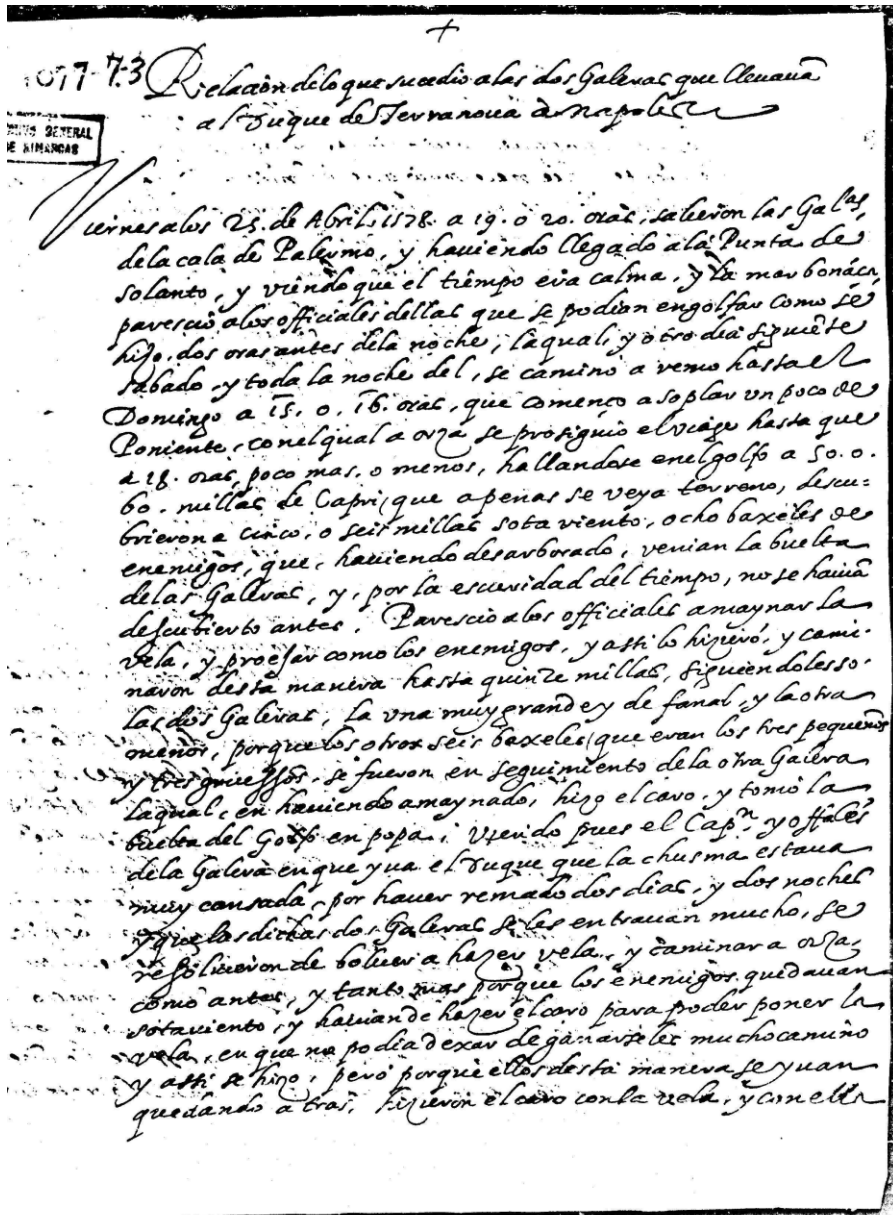 +
1077-73 Relacion de lo que sucedio a las dos Galeras que lleuauã
al Duque de Terranoua à Napoles
GENERAL
DE SIMANCAS
Viernes a los 25. de Abril 1578. a 19. o 20. oras, salieron las Galas.
de la cala de Palermo, y hauiendo llegado a la Punta de
solanto, y viendo que el tiempo era calma, y la mar bonáça,
parescio a los officiales dellas que se podian engolfar como se
hizo. dos oras antes dela noche, la qual, y otro dia siguiẽte
sabado, y toda la noche del, se caminò a remo hasta el
Domingo a 15. o. 16. oras, que començo a soplar un poco de
Poniente, con el qual a orza se prosiguio el viage hasta que
a 18. oras, poco mas, o menos, hallandose en el golfo a 50. o.
60. millas de Capri, que apenas se veya terreno, descu=
brieron a cinco, o seis millas sota viento, ocho baxeles de
enemigos, que, hauiendo desarborado, venian la buelta
de las Galeras, y, por la escuridad del tiempo, no se hauiã
descubierto antes. Parescio a los officiales amaynar la
vela, y proejar como los enemigos, y assi lo hizierõ, y cami-
naron desta manera hasta quinze millas, siguiendoles so-
las dos Galeras, la vna muy grande y de fanal, y la otra
menor, porque los otros seis baxeles (que eran los tres pequeños
y tres gruessos, se fueron en seguimiento de la otra Galera
la qual, en hauiendo amaynado, hizo el caro, y tomò la
buelta del Golfo en popa; Viendo pues el Capn. y offales
dela Galera en que yua el Duque que la chusma estaua
muy cansada, por hauer remado dos dias, y dos noches
y que las dichas dos Galeras se les entrauan mucho, se
resoluieron de boluer a hazer vela, y caminar a orza,
como antes, y tanto mas porque los enemigos quedauan
sotauiento, y hauian de hazer el caro para poder poner la
vela, en que no podia dexar de ganarseles mucho camino
y assi se hizo, pero porque ellos desta manera se yuan
quedando atras, hizieron el caro con la vela, y con ella